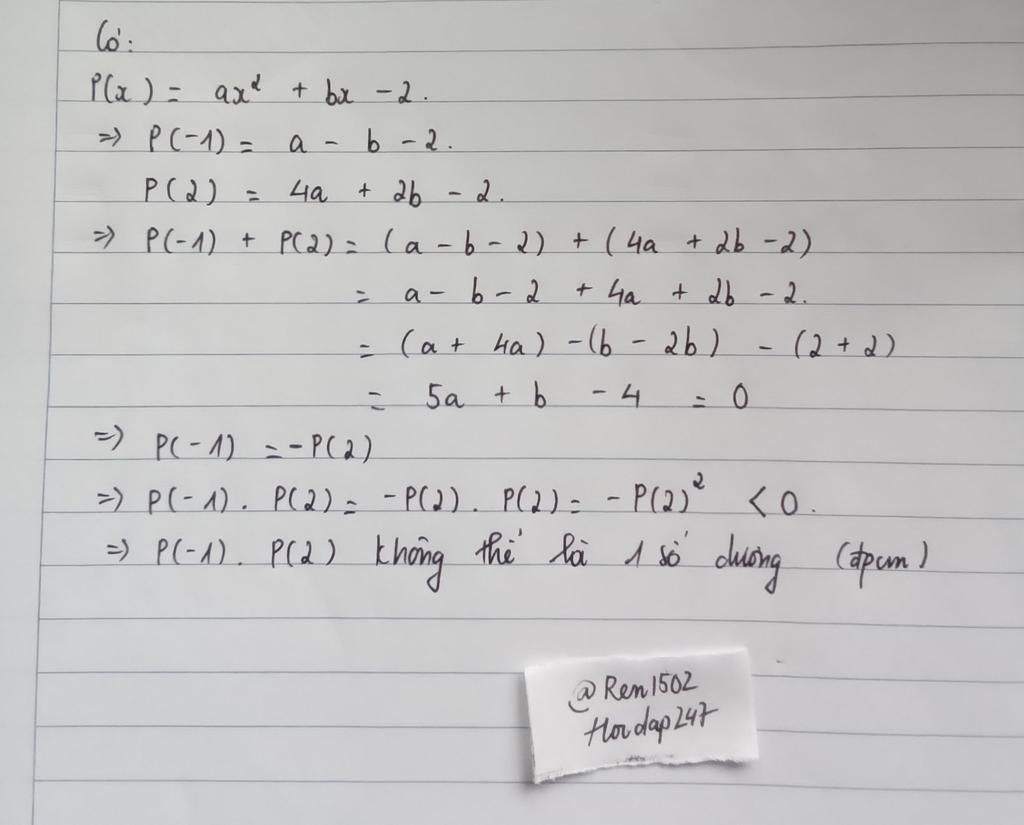 Có:
P(x) = ax² + bx - 2.
=> P(-1) = a - b - 2.
P(2) = 4a + 2b - 2.
=> P(-1) + P(2) = (a - b - 2) + (4a + 2b - 2)
= a - b - 2 + 4a + 2b - 2.
= (a + 4a) - (b - 2b) - (2 + 2)
= 5a + b - 4 = 0
=> P(-1) = -P(2)
=> P(-1) . P(2) = -P(2) . P(2) = -P(2)² < 0.
=> P(-1) . P(2) không thể là 1 số dương (đpcm)
@Ren1502
Hoidap247